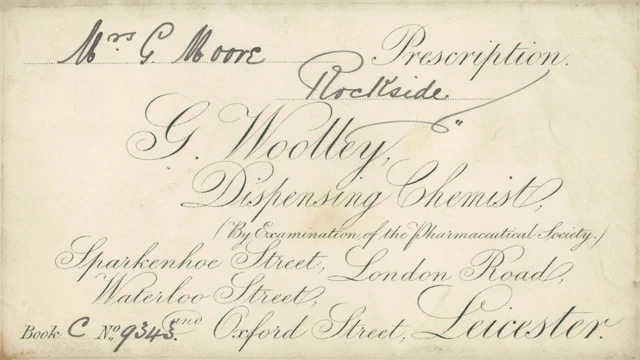 Mrs G. Moore Prescription.
Rockside
G. Woolley,
Dispensing Chemist,
(By Examination of the Pharmaceutical Society.)
Sparkenhoe Street, London Road,
Waterloo Street,
Book C No. 9343. and Oxford Street, Leicester.